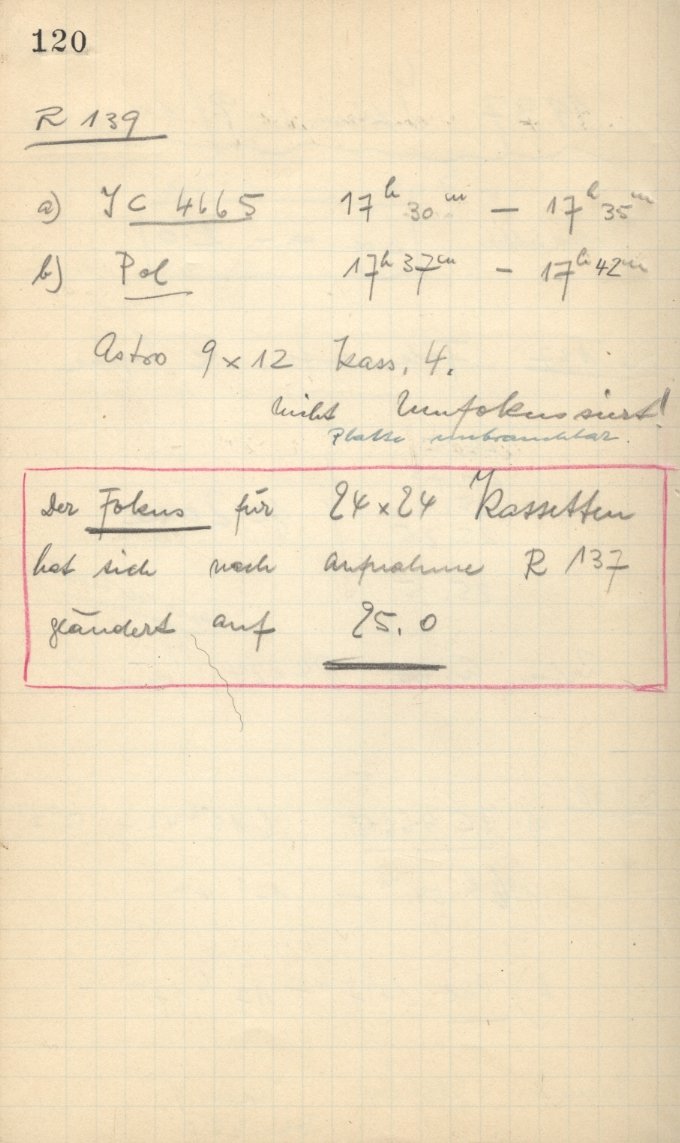 120
R 139
a) IC 4665 17h 30m — 17h 35m
b) Pol 17h 37m - 17h 42m
Astro 9x12 Kass. 4.
nicht umfokussiert!
Platte unbrauchbar.
Der Fokus für 24x24 Kassetten
hat sich nach Aufnahme R 137
geändert auf 25.0